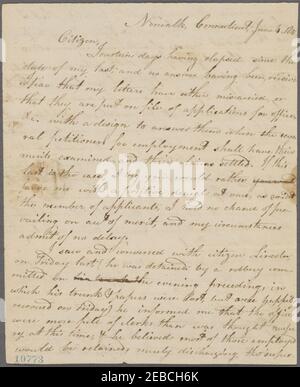 Norwalk, Connecticut, June 4, 180
Citizen,
Fourteen days having elapsed since the
date of my last; and no answer having been receiv
I fear that my letters have either miscarried, or
that they are put on file of applications for office
&c. with a design to answer them when the seve
ral petitioners for employment shall have their
merits examined, and their fate noted. If this
last is the case, I would rather
have my will
the number of applicants, I had no chance of pre
vailing on act of merit, and my circumstances
admit of no delay.
I saw and conversed with citizen Lincoln
on Friday last; he was detained by a robbery com
mitted on the evening preceding, in
which his trunk & papers were lost, but are happily
recovered on Friday; he informed me that the offices
were more full of clerks than was thought necess
ry at this time; & he believed most of those employed
would be retained, merely discharging the super
19773
alamy
Image ID: 2EBCH6K
www.alamy.com